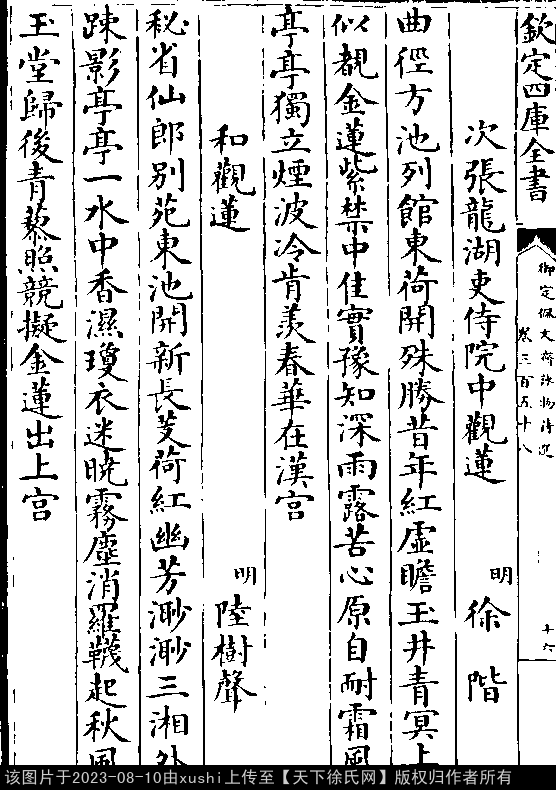 欽定四庫全書
御定佩文齋詠物詩選
卷三百五十八
十六
次張龍湖吏侍院中觀蓮
明 徐階
曲徑方池列館東荷開殊勝昔年紅虛瞻玉井青冥上
似覩金蓮紫禁中佳實豫知深雨露苦心原自耐霜風
亭亭獨立煙波冷肯羨春華在漢宫
和觀蓮
明 陸樹聲
秘省仙郎别苑東池開新長芰荷紅幽芳渺渺三湘外
踈影亭亭一水中香濕瓊衣迷曉霧塵消羅韈起秋風
玉堂歸後青藜照競擬金蓮出上宫
该图片于2023-08-10由xushi上传至【天下徐氏网】版权归作者所有